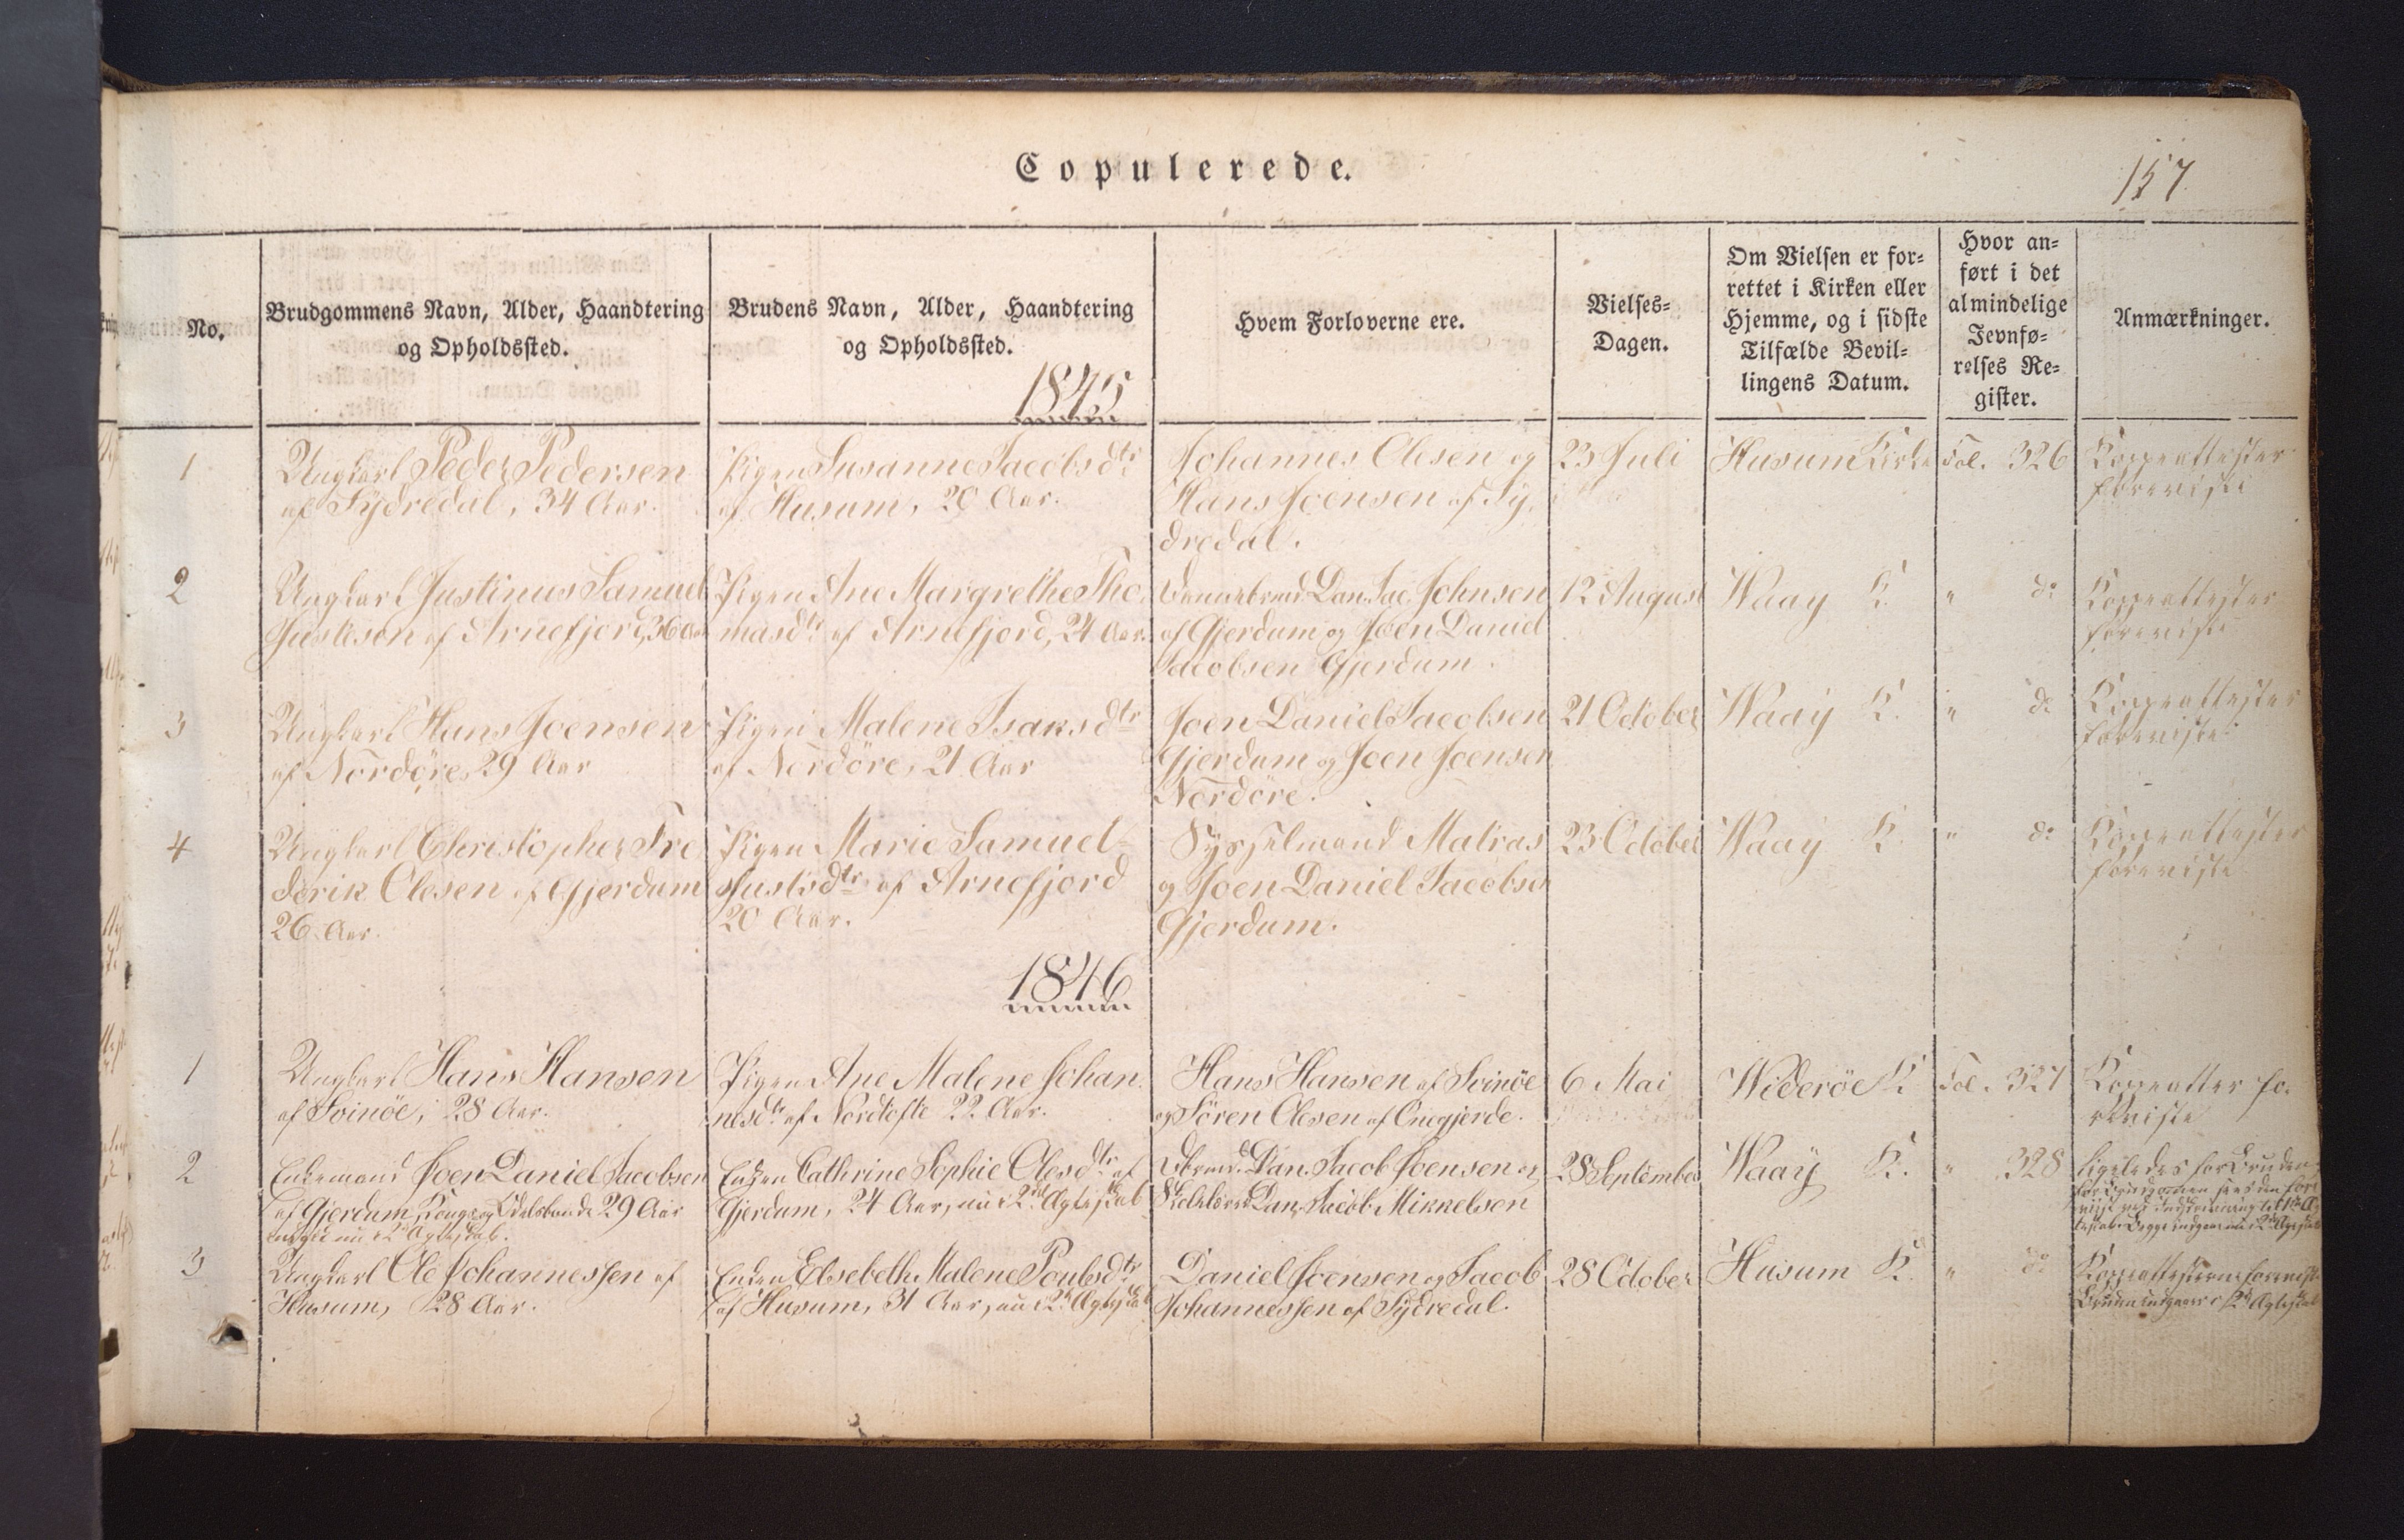 Copulerede.
157
No.
Brudgommens Navn, Alder, Haandtering
og Opholdssted.
Brudens Navn, Alder, Haandtering
og Opholdssted.
Hvem Forloverne ere.
Vielses-
Dagen.
Om Vielsen er for-
rettet i Kirken eller
Hjemme, og i sidste
Tilfælde Bevil-
lingens Datum.
Hvor an-
ført i det
almindelige
Jevnfø-
relses Re-
gister.
Anmærkninger.
1845
1
Ungkarl Peder Pedersen
af Sydredal, 34 Aar.
Pigen Susanne Jacobsdtr
af Husum, 20 Aar.
Johannes Olesen og
Hans Joensen af Sy,
dredal.
23 Juli
Husum Kirke
Fol. 326
Koppeattester
foreviste
2
Ungkarl Justinus Samuel
Justesen af Arnefjord, 36 Aar
Pigen Ane Margrethe Tho,
masdtr af Arnefjord, 24 Aar.
Dannebrmd. Dan. Jac. Johnsen
af Gjerdum og Joen Daniel
Jacobsen Gjerdum.
12 August
Waay K.
" do
Koppeattester
foreviste
3
Ungkarl Hans Joensen
af Nordöre, 29 Aar
Pigen Malene Isaksdtr
af Nordöre, 21 Aar
Joen Daniel Jacobsen
Gjerdum og Joen Joensen
Nordöre.
21 October
Waay K.
" do
Koppeattester
foreviste
4
Ungkarl Christopher Fre
derik Olesen af Gjerdum
26 Aar.
Pigen Marie Samuel-
Justsdtr af Arnefjord
20 Aar.
Sysselmand Matras
og Joen Daniel Jacobsen
Gjerdum.
23 October
Waay K
" do
Koppeattester
foreviste
1846
1
Ungkarl Hans Hansen
af Svinöe, 28 Aar.
Pigen Ane Malene Johan,
nesdtr af Nordtofte 22 Aar.
Hans Hansen af Svinöe
og Sören Olesen af Onegjerde.
6 Mai
Wideröe K
Fol. 327
Koppeatter fo-
reviste
2
Enkemand Joen Daniel Jacobsen
af Gjerdum, Konge og Odelsbonde 29 Aar
nu i 2d Ægteskab.
Enken Cathrine Sophie Olesdtr af
Gjerdum, 24 Aar, nu i 2det Ægteskab
Dbrmd. Dan. Jacob Joensen og
Dan. Jacob Mikkelsen
28 September
Waay K.
" 328
ligeledes for Bruden,
3
Ungkarl Ole Johannessen af
Husum, 28 Aar.
Enken Elsebeth Malene Poulsdtr
af Husum, 31 Aar, nu i 2d Ægteskab
Daniel Joensen og Jacob
Johannessen af Sydredal.
28 October
Husum K.
" do
Koppeattesterne foreviste
Bruden indgaaer i 2d Ægteskab